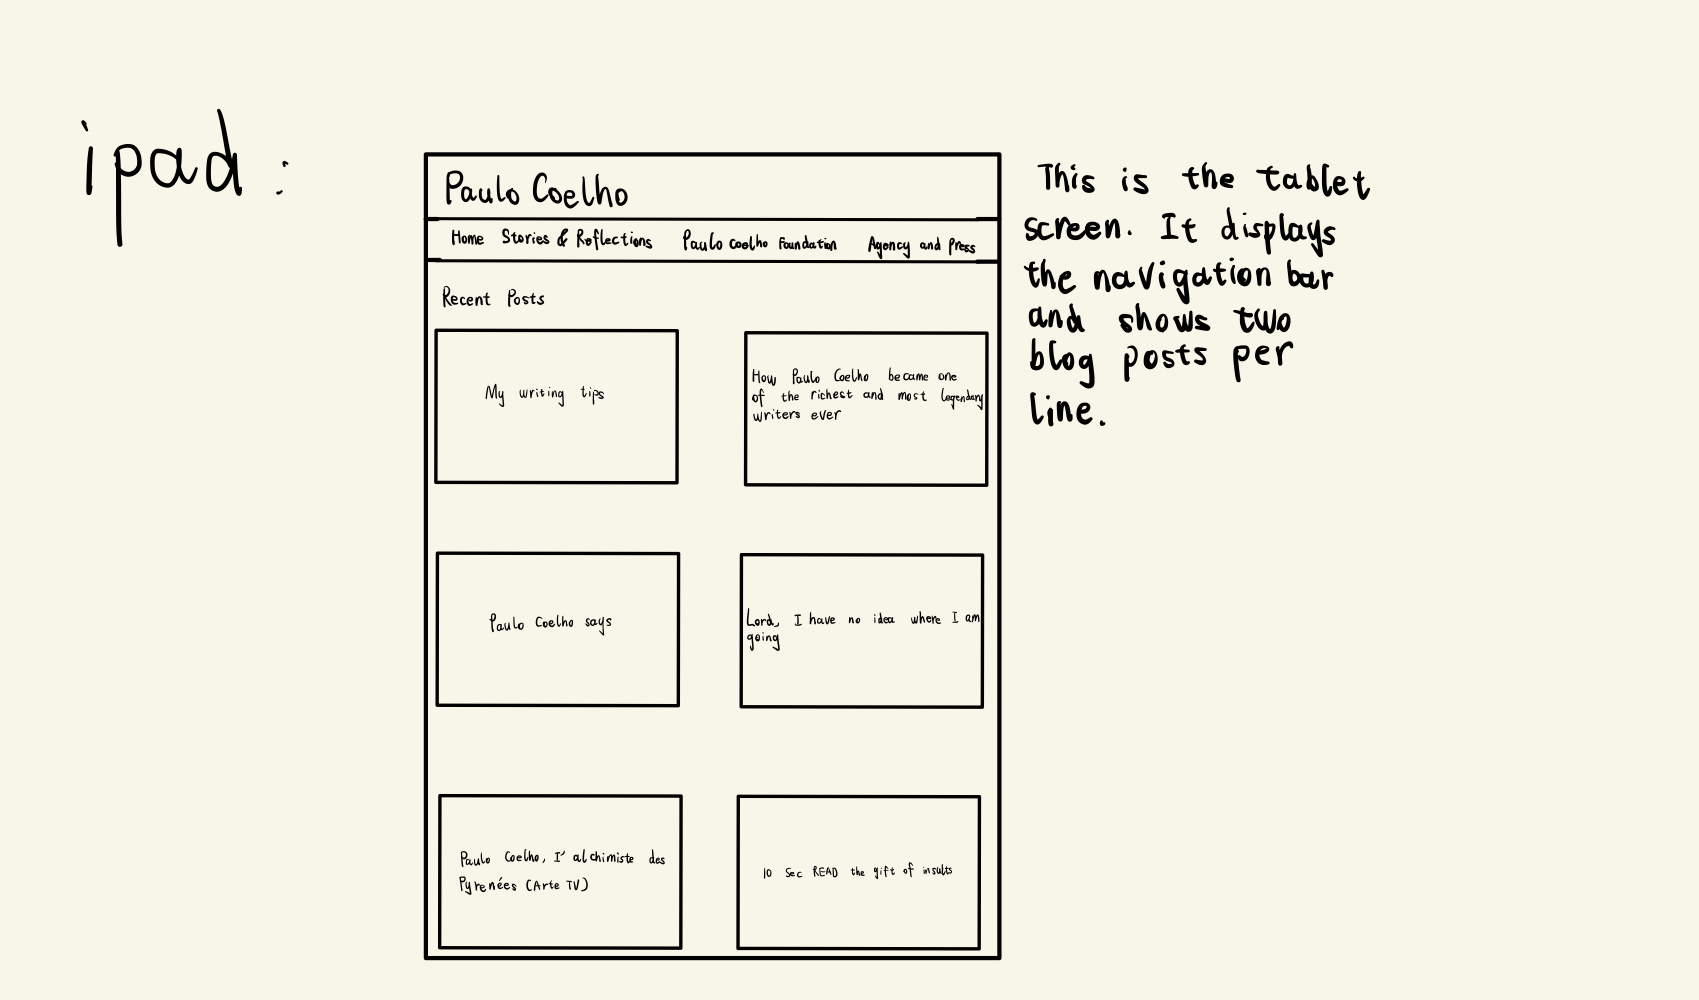 ipad :
Paulo Coelho
Home Stories & Reflections Paulo Coelho Foundation Agency and Press
Recent Posts
My writing tips
How Paulo Coelho became one
of the richest and most legendary
writers ever
Paulo Coelho says
Lord, I have no idea where I am
going
Paulo Coelho, I' alchimiste des
Pyrenées (Arte TV)
10 Sec READ the gift of insults
This is the tablet
screen. It displays
the navigation bar
and shows two
blog posts per
line.